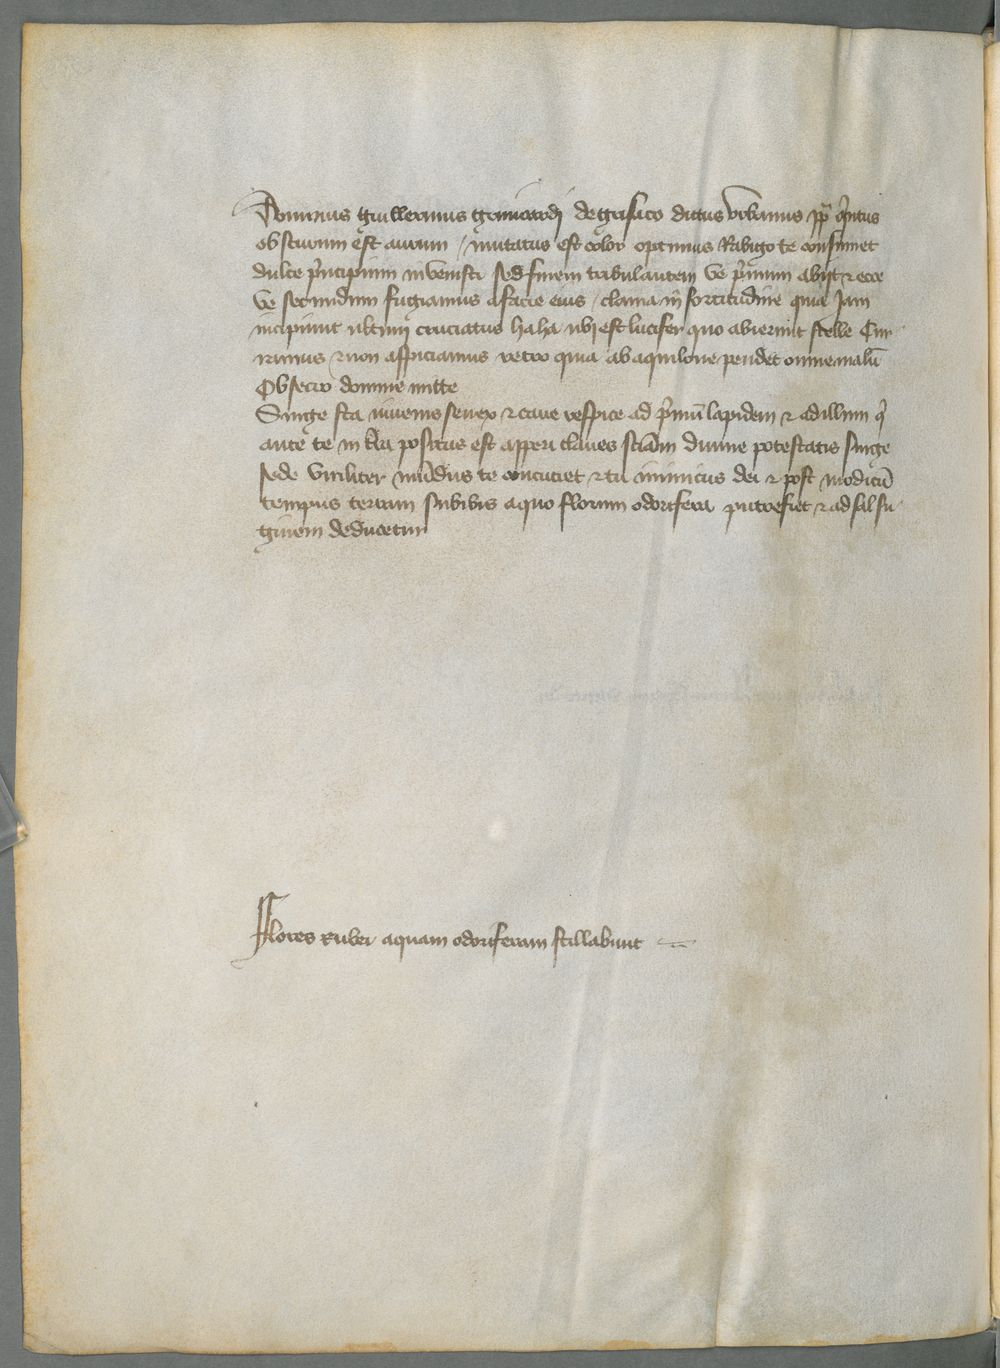 Dominus Guillermus grimiardi de grisaco dictus Vrbanus pp̄ qͥntus
obscurum est aurum / mutatus est color optimus Rubigo te consumet
dulce pͥncipium invenisti sed finem tribulantem ve pͥmum abijt ⁊ ecce
ve secundum fugiamus a facie eius / clama in fortitudine quia Jam
incipiunt ultimi cruciatus ha ha ubj est lucifer quo abierunt stelle Cur
ramus ⁊ non asspiciamus retro quia ab aquilone pendet omne malū
Obsecro domine mitte
Surge sta iuvenis senex ⁊ caue resspice ad pͥmū lapidem ⁊ ad illum qͥ
ante te in positus est apperi claues sciam divine potestatis surge
sede viriliter mūdus te concuciet ⁊ tu inimicus dei ⁊ post modicū
tempus terram subibis aquo florum odorifera putrefiet ⁊ ad salsu
ginem deducetur
Flores rubei aquam odoriferam stillabunt